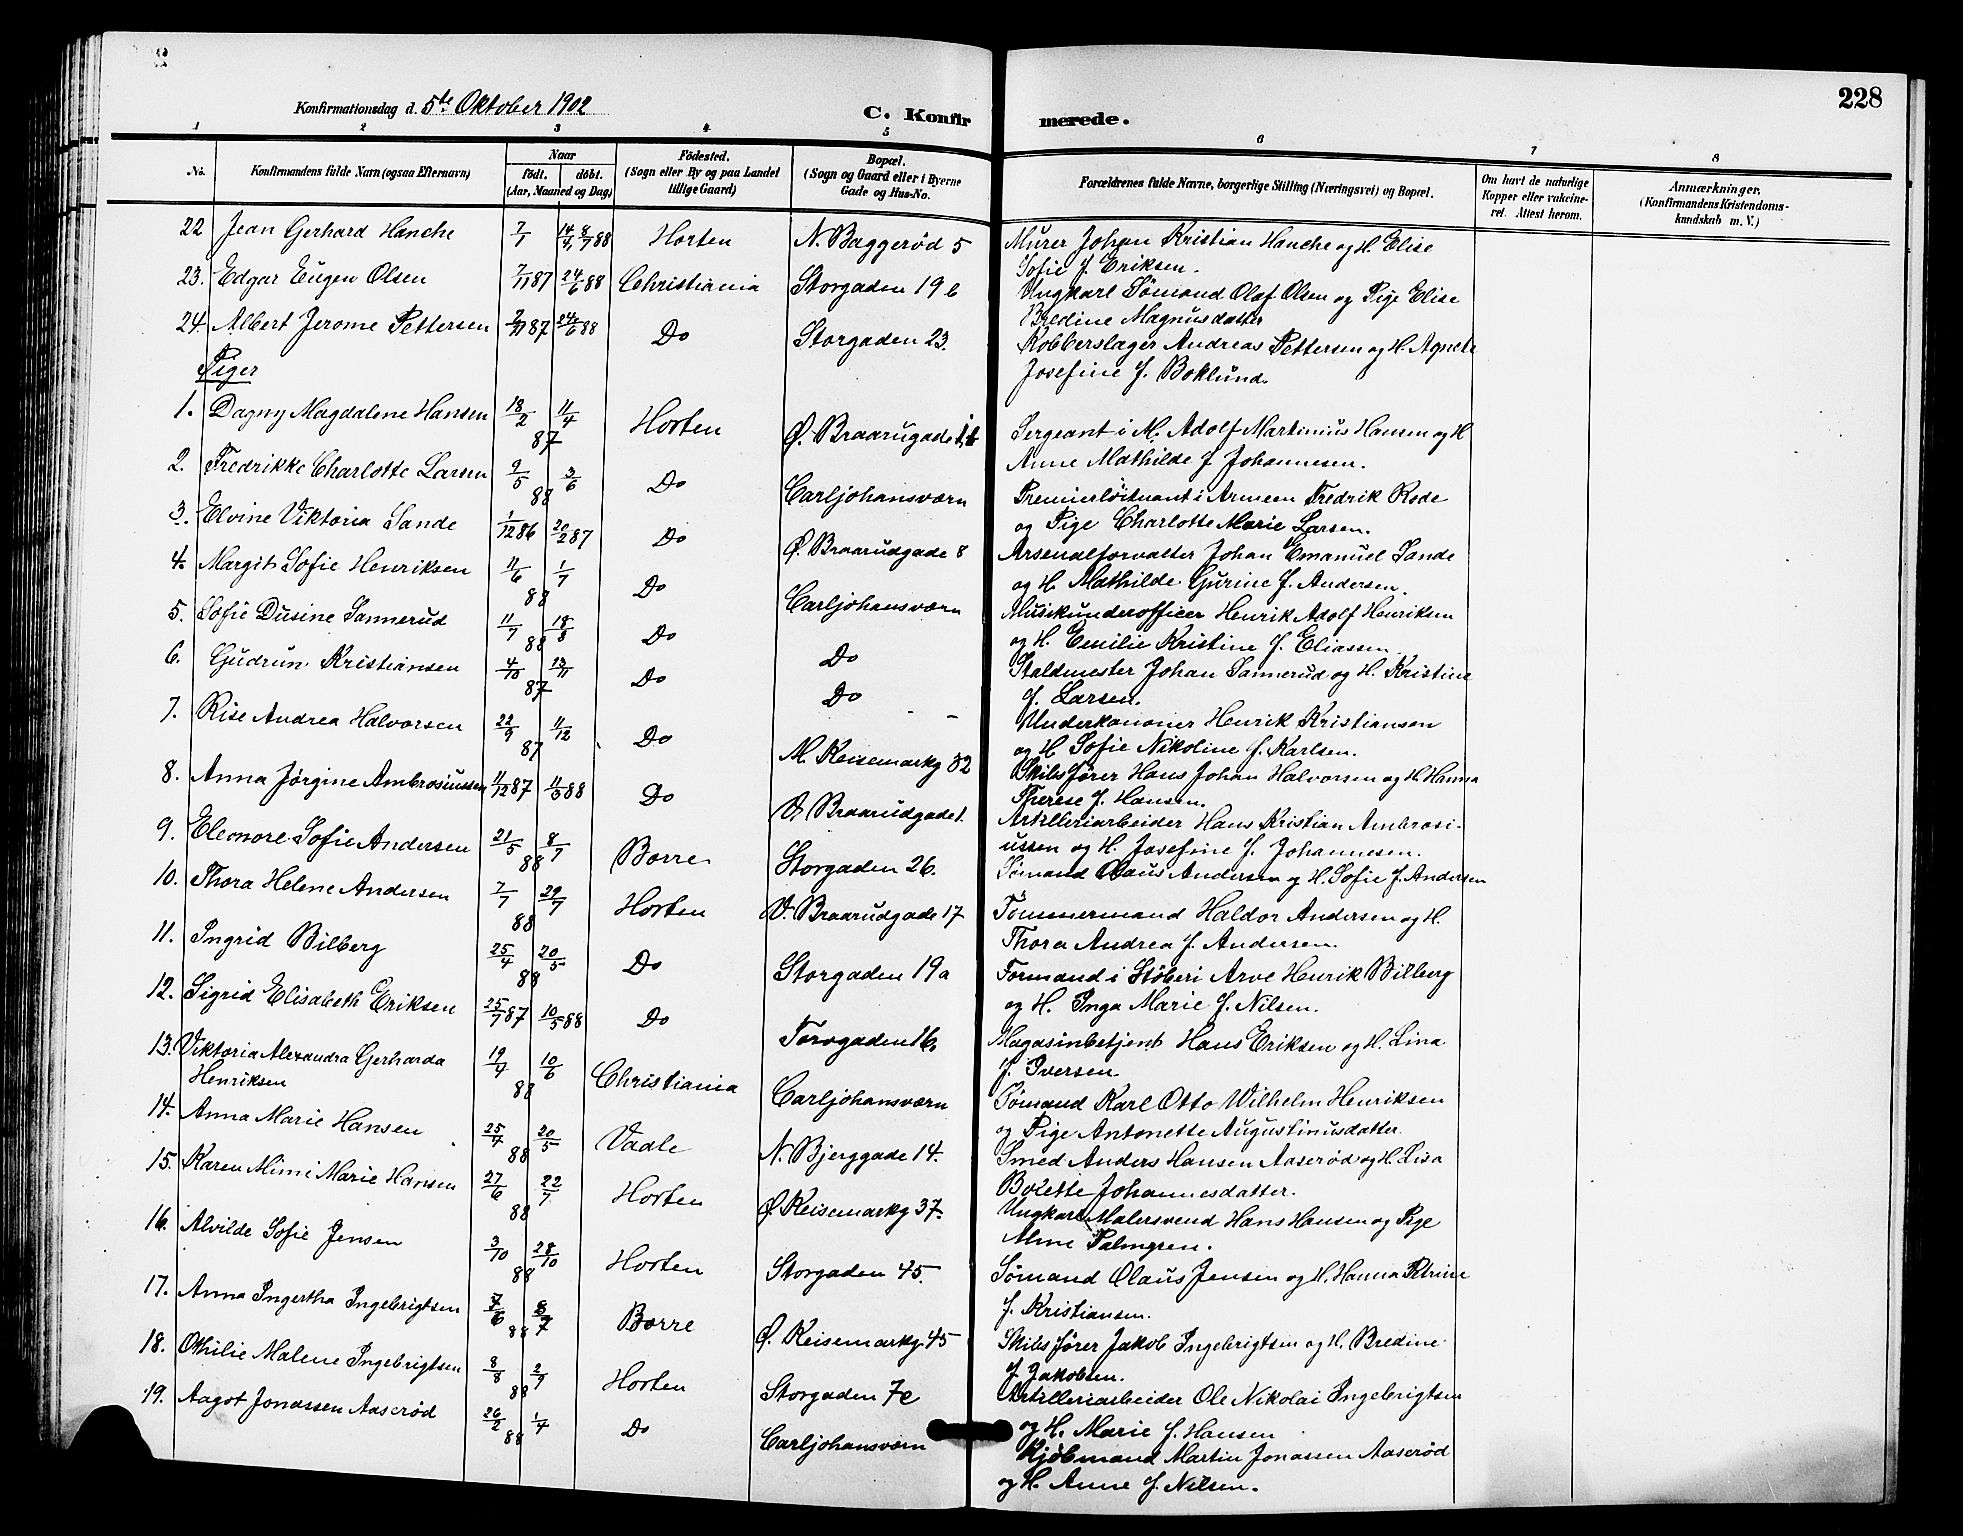 228
Konfirmationsdag d. 5te Oktober 1902
C. Konfirmerede.
1 2 3 4 5 6 7 8
No. Konfirmandens fulde Navn (ogsaa Efternavn) Naar födt. döbt. (Aar, Maaned og Dag) Födested. (Sogn eller By og paa Landet tillige Gaard) Bopæl. (Sogn og Gaard eller i Byerne Gade og Hus-No. Forældrenes fulde Navne, borgerlige Stilling (Næringsvei) og Bopæl. Om havt de naturlige Kopper eller vakcineret. Attest herom. Anmærkninger. (Konfirmandens Kristendomskundskab m. V.)
22 Jean Gerhard Hanche 7/1 8/7 88 Horten N. Baggerød 5 Murer Johan Kristian Hanche og H. Elise
Sofie f. Eriksen.
23. Edgar Eugen Olsen 7/11 87 24/6 88 Christiania Storgaden 19 b Ungkarl Sømand Olaf Olsen og Pige Elise
Bredine Magnusdatter
24. Albert Jerome Pettersen 2/11 87 24/6 88 Do Storgaden 23. Kobberslager Andreas Pettersen og H. Agnete
Josefine f. Boklund.
Piger
1. Dagny Magdalene Hansen 18/2 11/4 87 Horten Ø. Braarugade Sergeant i M. Adolf Martinius Hansen og H
Anne Mathilde f Johannesen.
2. Fredrikke Charlotte Larsen 9/5 3/6 88 Do Carljohansværn Premierløitnant i Armeen Fredrik Rode
og Pige Charlotte Marie Larsen.
3. Elvine Viktoria Sande 1/12 86 20/2 87 Do Ø. Braarudgade 8 Arsenalforvalter Johan Emanuel Sande
og H. Mathilde Gurine f. Andersen.
4. Margit Sofie Henriksen 11/6 1/7 88 Do Carljohansværn Musikunderofficer Henrik Adolf Henriksen
og H. Emilie Kristine f. Eliassen
5. Sofie Dusine Sannerud 11/7 18/8 88 Do Do Staldmester Johan Sannerud og H. Kristine
f. Larsen.
6. Gudrun Kristiansen 4/10 13/11 87 Do Do Underkanoner Henrik Kristiansen
og H Sofie Nikoline f. Karlsen.
7. Rise Andrea Halvorsen 22/9 11/12 87 Do M. Reisemarkg 32 Skibsfører Hans Johan Halvorsen og H. Hanna
Therese f. Hansen.
8. Anna Jørgine Ambrosiussen 11/12 87 11/3 88 Do V. Braarudgade 1. Artilleriarbeider Hans Kristian Ambrosi-
ussen og H. Josefine f. Johannesen.
9. Eleonore Sofie Andersen 21/5 8/7 88 Borre Storgaden 26. Sømand Claus Andersen og H. Sofie f. Andersen
10. Thora Helene Andersen 7/7 29/7 88 Horten V. Braarudgade 17 Tømmermand Haldor Andersen og H.
Thora Andrea f. Andersen.
11. Ingrid Bilberg 25/4 20/5 88 Do Storgaden 19a Formand i Støberi Arve Henrik Bilberg
og H. Inga Marie f. Nilsen.
12. Sigrid Elisabeth Eriksen 25/7 87 10/5 88 Do Torvgaden 16. Magasinbetjent Hans Eriksen og H. Lina
f. Iversen.
13. Viktoria Alexandra Gerharda 19/4 10/6 88 Christiania Carljohansværn Sømand Karl Otto Wilhelm Henriksen
Henriksen og Pige Antonette Augustinusdatter
14. Anna Marie Hansen 25/4 20/5 88 Vaale N. Bjerggade 14. Smed Anders Hansen Aaserød og H. Lisa
Bolette Johannesdatter.
15. Karen Mimi Marie Hansen 27/6 22/7 88 Horten Ø. Reisemarkg 37. Ungkarl Malersvend Hans Hansen og Pige
Aline Palmgren.
16. Alvilde Sofie Jensen 3/10 28/10 88 Horten Storgaden 45. Sømand Olaus Jensen og H. Hanna Petrine
f. Kristiansen.
17. Anna Ingertha Ingebrigtsen 7/6 8/7 88 Borre Ø. Reisemarkg 45 Skibsfører Jakob Ingebrigtsen og H. Bredine
f. Jakobsen.
18. Othilie Malene Ingebrigtsen 8/8 2/9 88 Horten Storgaden 7c Artilleriarbeider Ole Nikolai Ingebrigtsen
og H. Marie f. Hansen
19. Aagot Jonassen Aaserød 26/2 1/4 88 Do Carljohansværn Kjøbmand Martin Jonassen Aaserød
og H. Anne f. Nilsen.